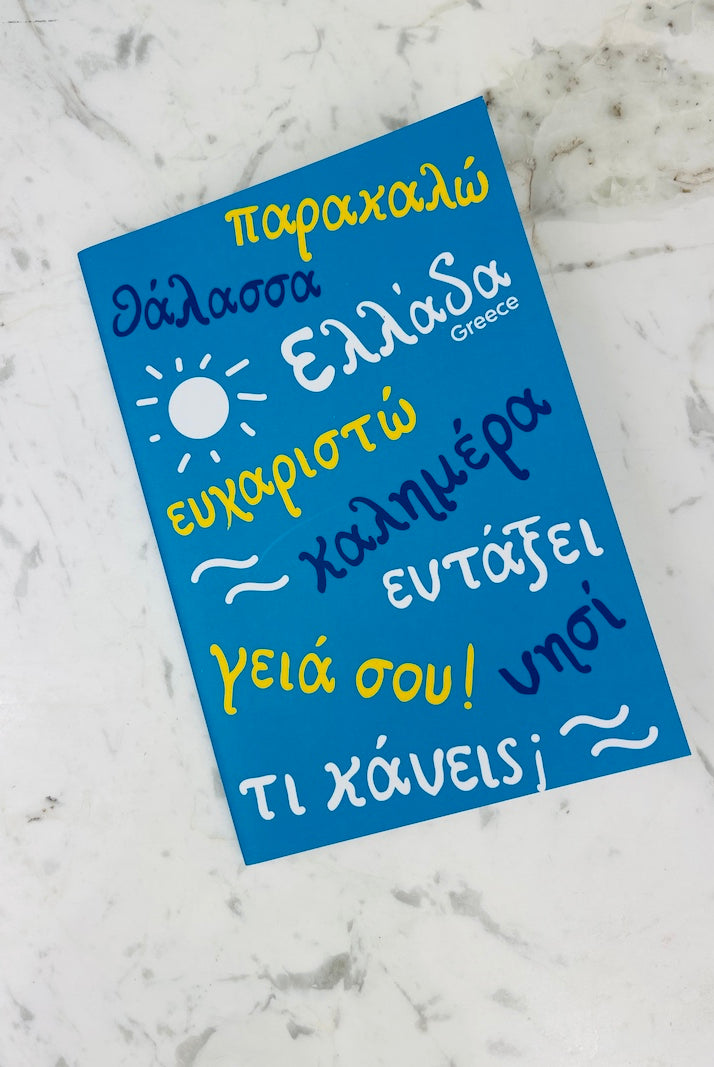 παρακαλώ
θάλασσα
Ελλάδα
Greece
ευχαριστώ
καλημέρα
εντάξει
γειά σου!
νησί
τι κάνεις;